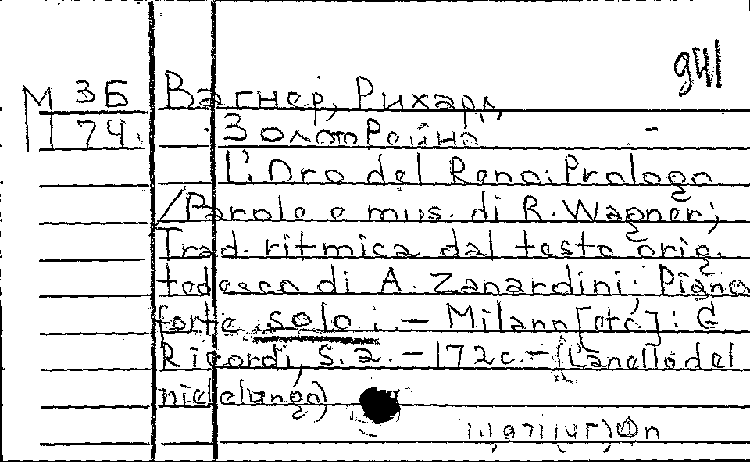 941
М ЗБ Вагнер, Рихард
174. Золото Рейна -
L'Oro del Reno: Prologo
/Parole e mus. di R. Wagner;
Trad. ritmica dal testo orig.
tedesco di A. Zanardini; Piano
forte solo. - Milano [etc.]: G.
Ricordi, S.a. - 172c. - (L'anello del
nibelungo)